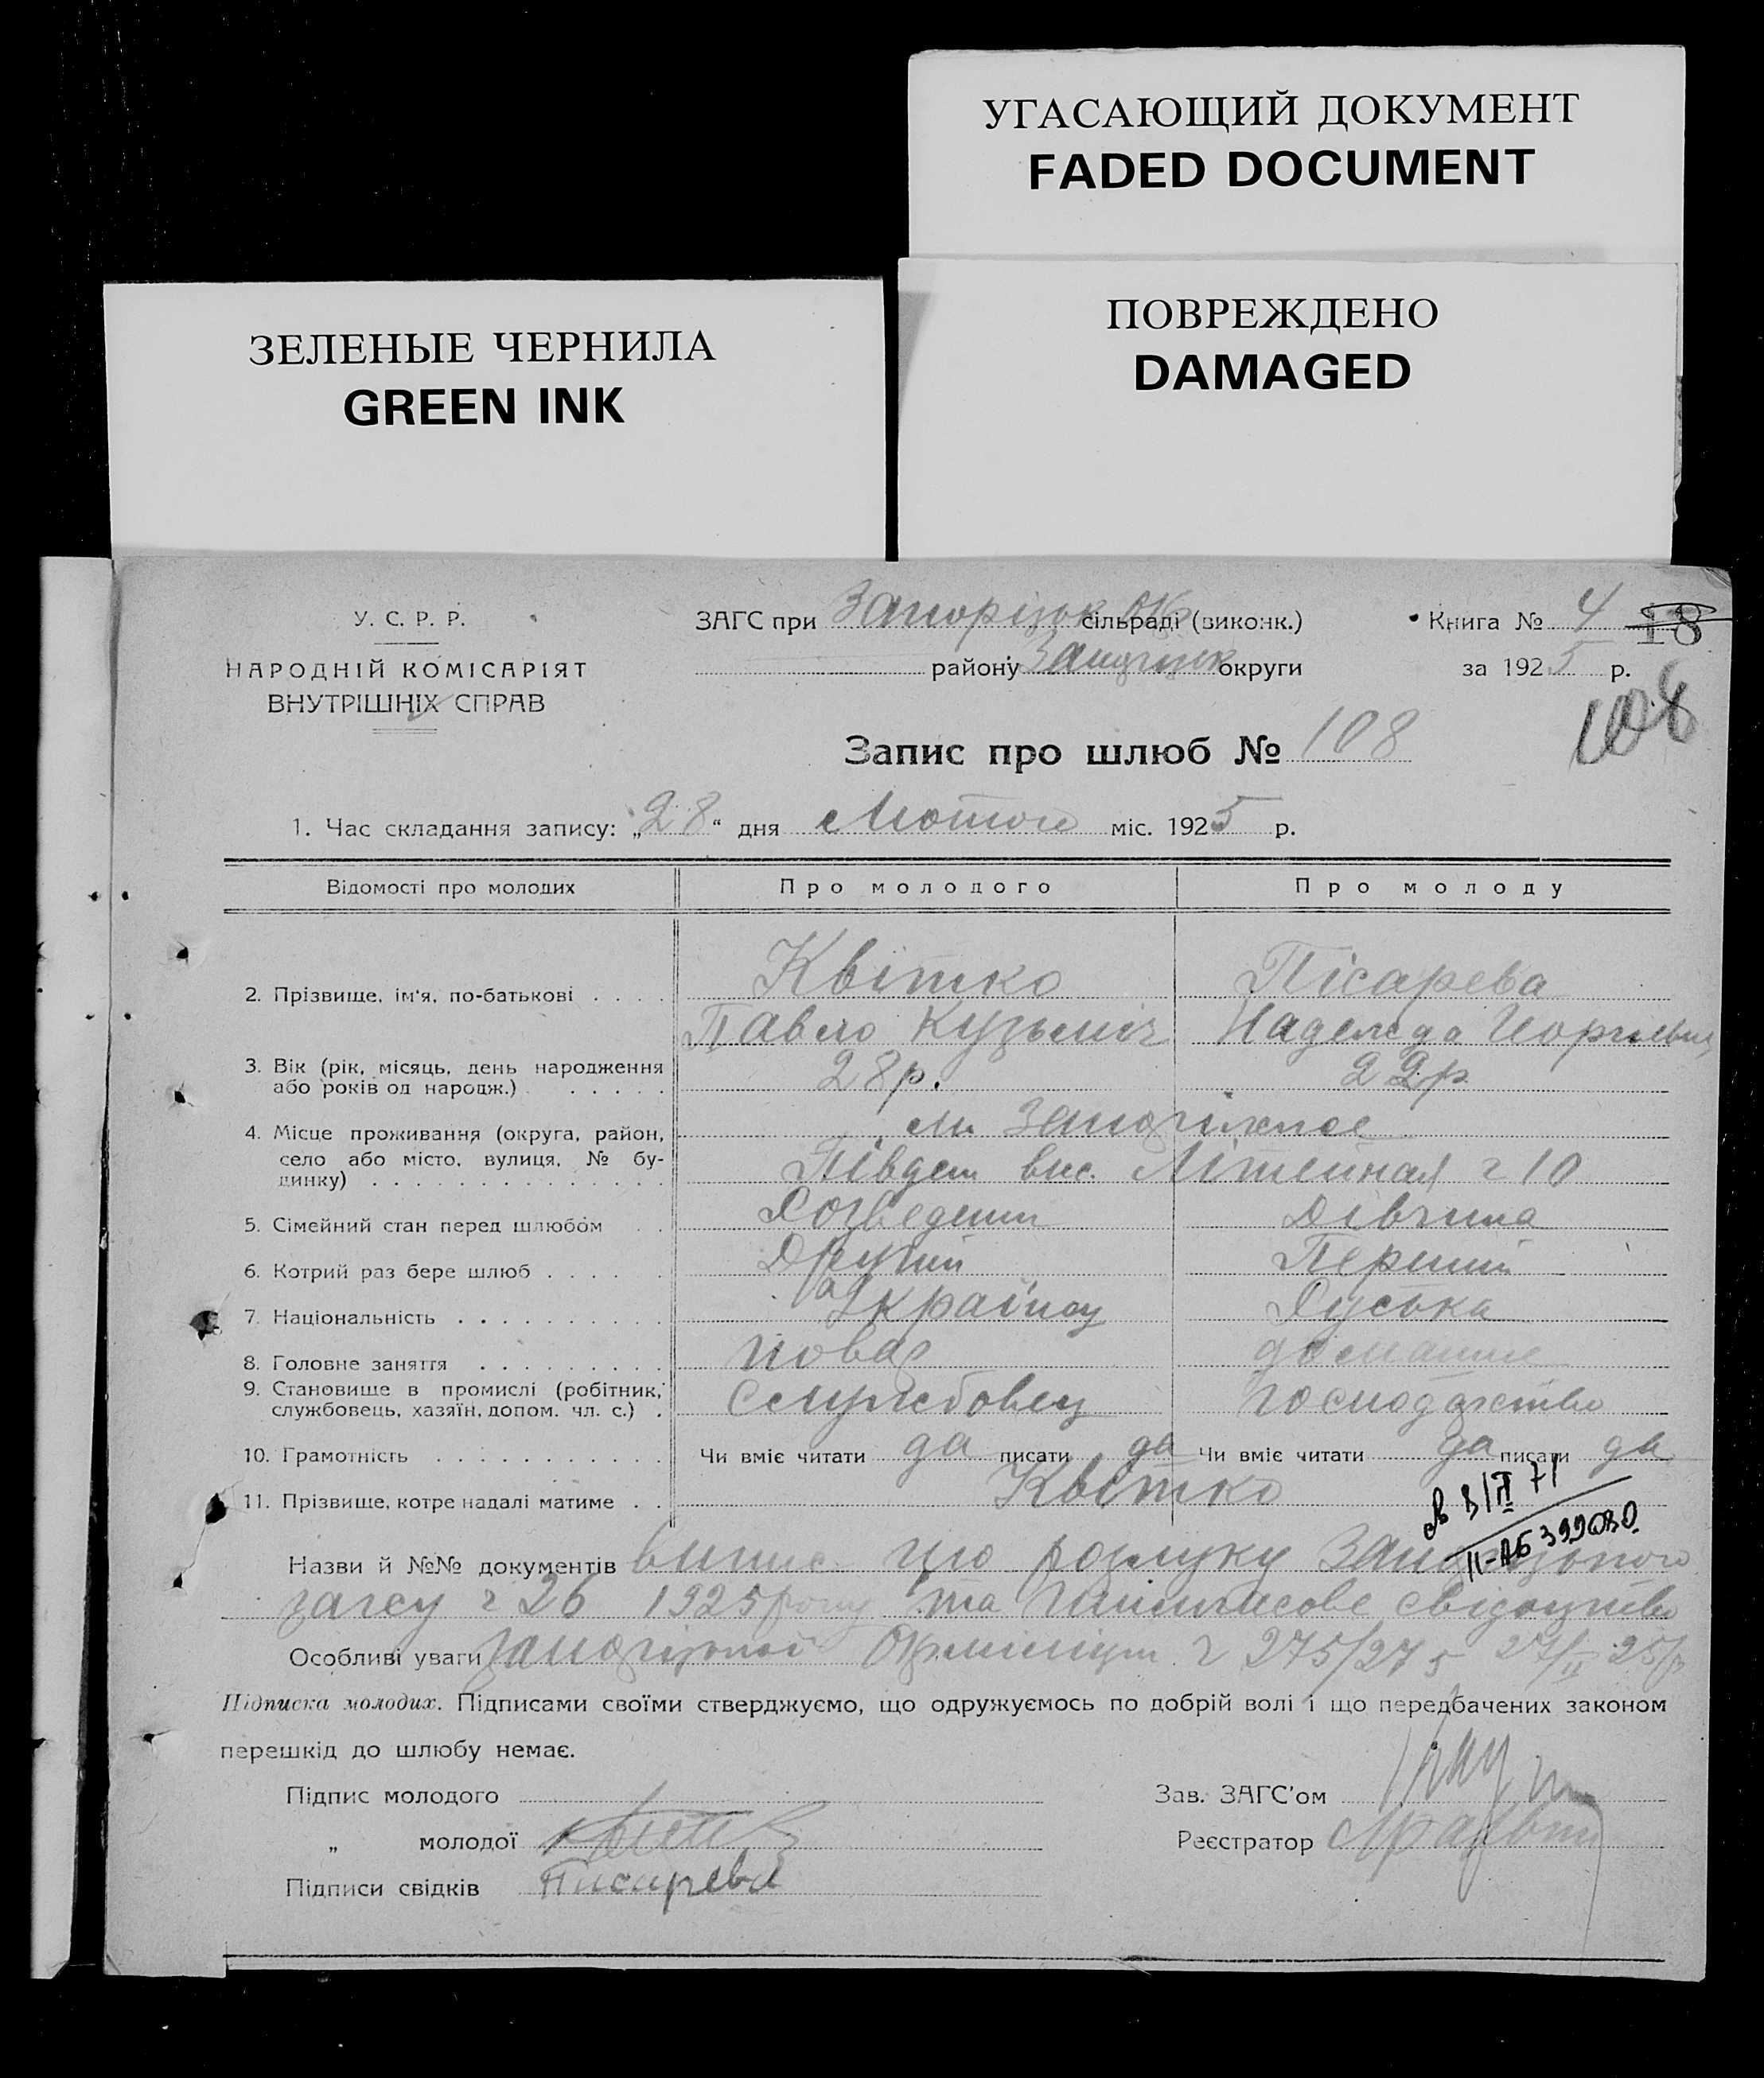 УГАСАЮЩИЙ ДОКУМЕНТ
FADED DOCUMENT
ЗЕЛЕНЫЕ ЧЕРНИЛА
GREEN INK
ПОВРЕЖДЕНО
DAMAGED
У. С. Р. Р.
НАРОДНІЙ КОМІСАРІЯТ
ВНУТРІШНІХ СПРАВ
ЗАГС при Запорізьк сільраді (виконк.)
району округи
Книга № 4 18
за 1925 р.
108
Запис про шлюб № 108
1. Час складання запису: „28“ дня Лютого міс. 1925 р.
Відомості про молодих Про молодого Про молоду
2. Прізвище, ім'я, по-батькові . . . . Квітко Пісарева
Павло Кузьміч Надежда
3. Вік (рік, місяць, день народження або років од народж.) . . . . . 28р. 22р
4. Місце проживання (округа, район, село або місто, вулиця, № будинку) . . . . . . . . . . . . . м Запоріжжє
Півден вис. Літейная ч 10
5. Сімейний стан перед шлюбом . . Розведений Дівчина
6. Котрий раз бере шлюб . . . . . Другий Перший
7. Національність . . . . . . . . . . Українец Руська
8. Головне заняття . . . . . . . . . домашне
9. Становище в промислі (робітник, службовець, хазяїн, допом. чл. с.) . Службовец господарство
10. Грамотність . . . . . . . . . . . Чи вміє читати да писати да Чи вміє читати да писати да
11. Прізвище, котре надалі матиме . . Квітко
в 3/II 71
II-АБ 399030
Назви й №№ документів випис про розлуку Запорізького
загсу ч 26 1925 року та свідоцтво
Особливі уваги Запорізької Окрміліції ч 275/275 27/II 25р
Підписка молодих. Підписами своїми стверджуємо, що одружуємось по добрій волі і що передбачених законом
перешкід до шлюбу немає.
Підпис молодого
„ молодої
Підписи свідків Писарева
Зав. ЗАГС'ом
Реєстратор